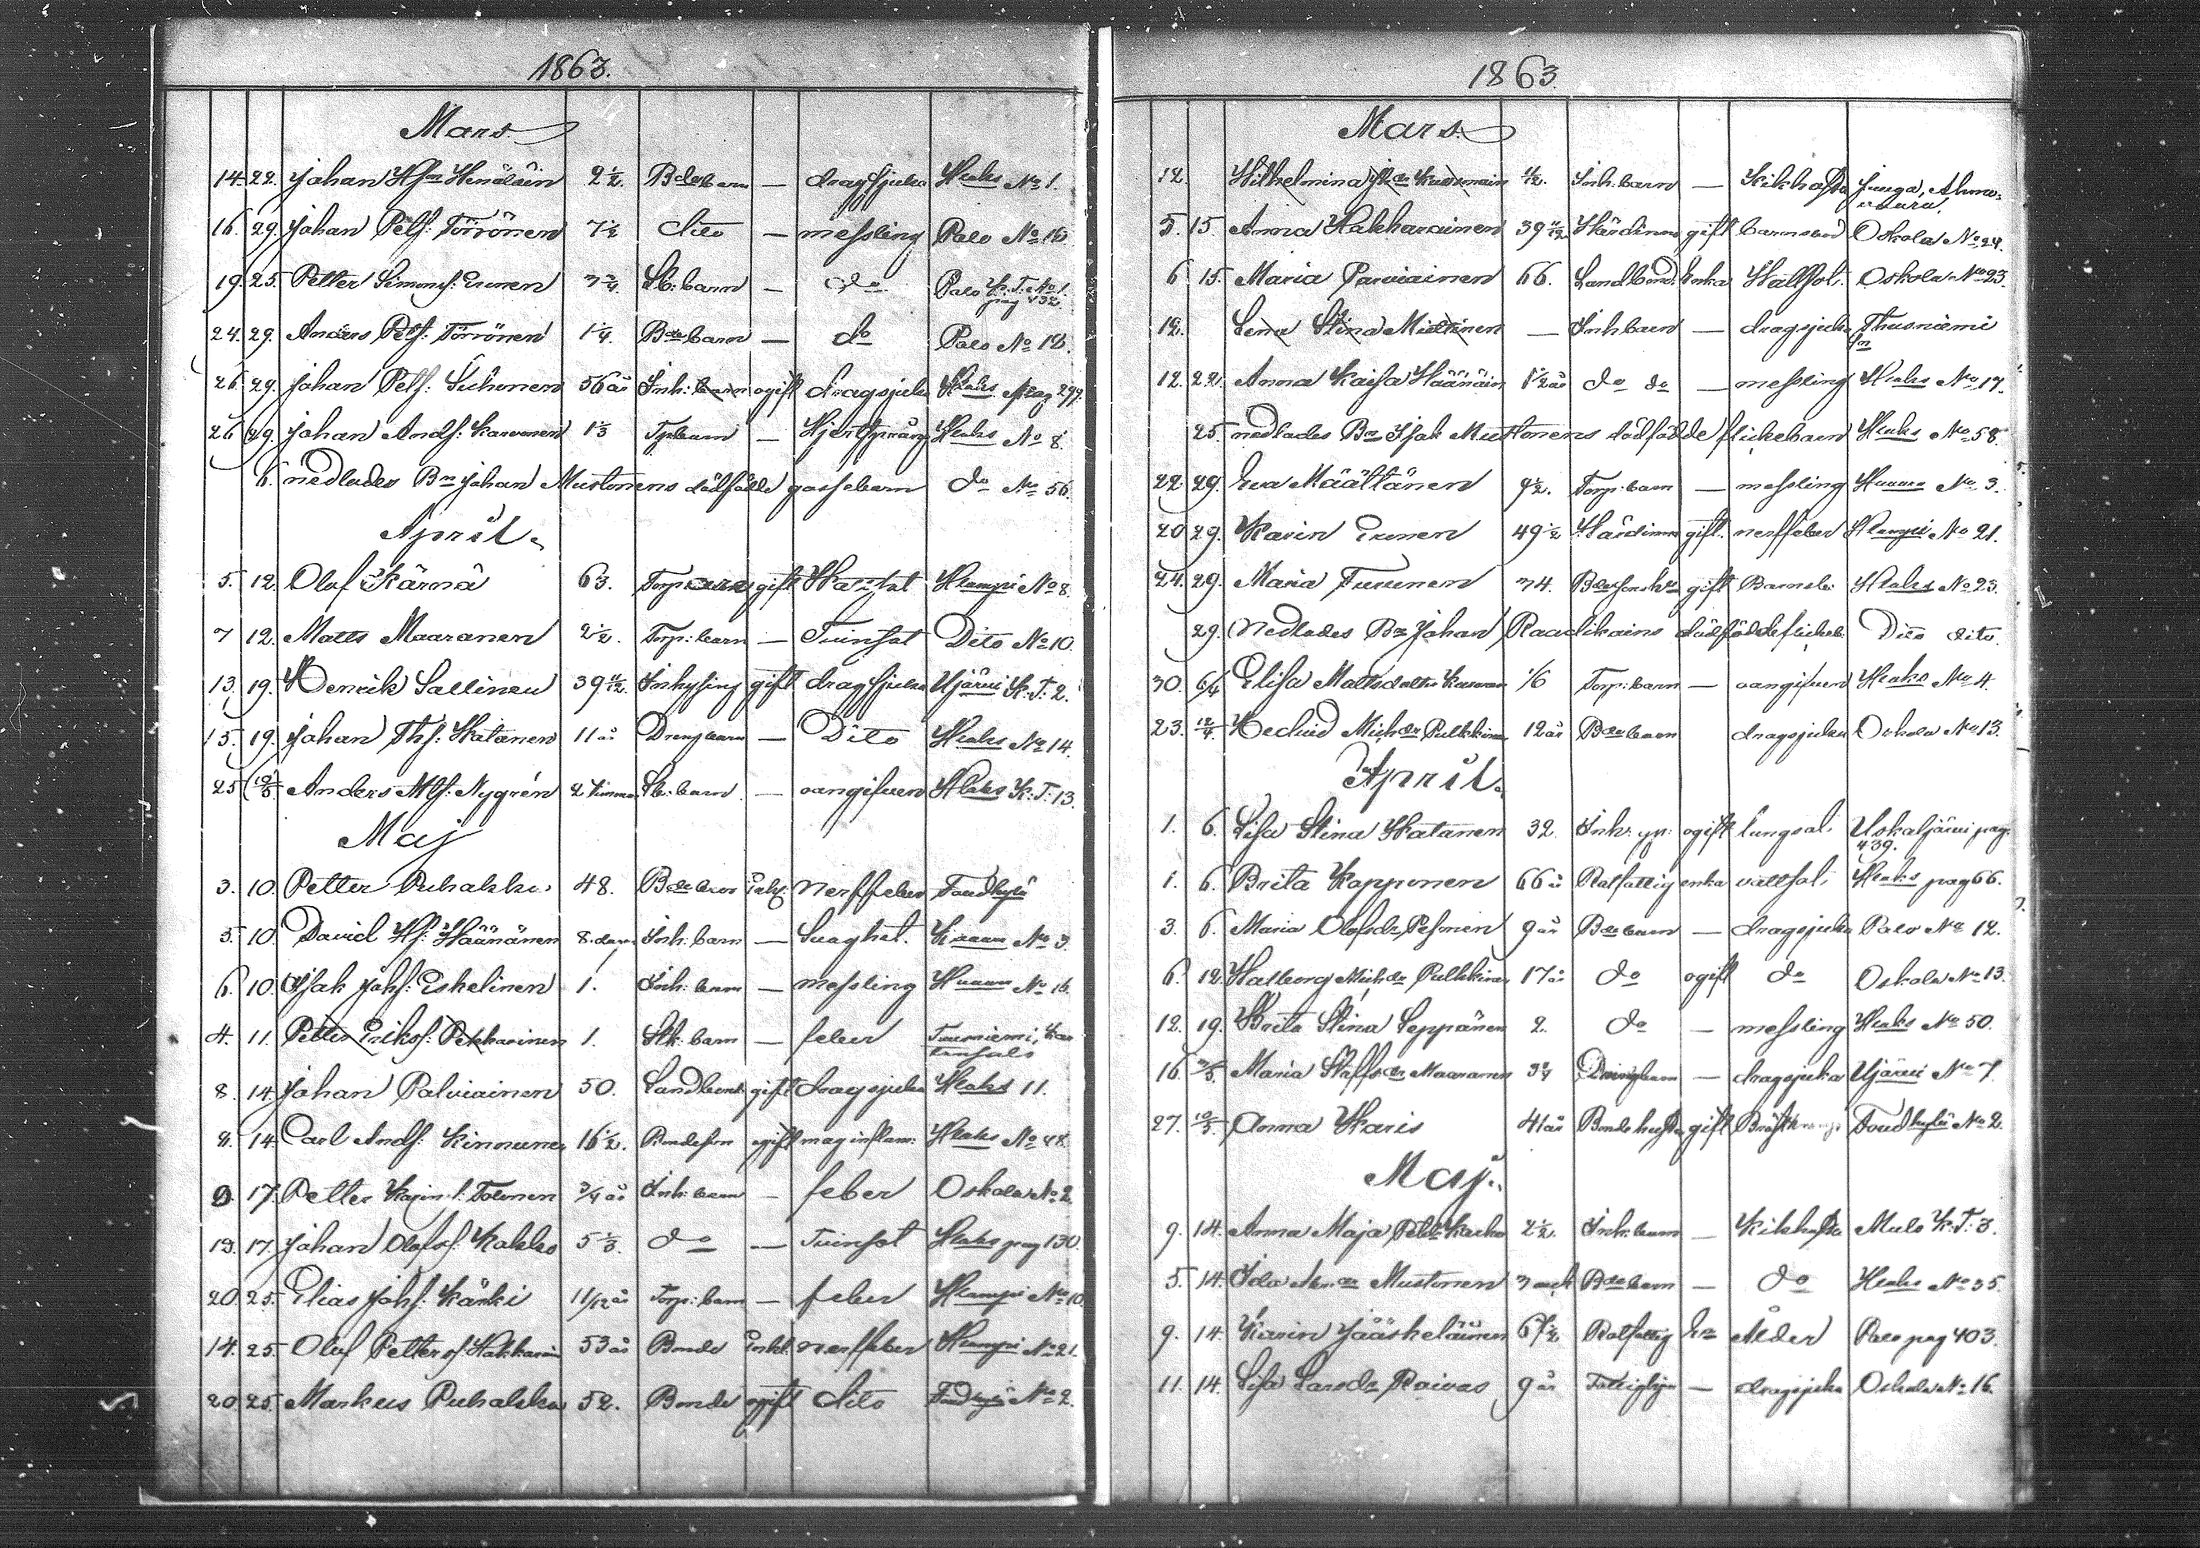 1863.
Mars
14. 22. Johan Hfsn 2 1/2. Bdebarn — dragsjuka Hlaks No 1.
16. 29. Johan Petf: Törrönen 7 1/2 dito — messling Palo No 12
19. 25. Petter Simonsf: Eronen 3/4 Sk: barn — do Palo K.T. No 1. pag 432
24. 29. Anders Petf: Törrönen 1 1/4. Bdebarn — do Palo No 12.
26. 29. Johan Petf: Tiihonen 56 år Inh: ogift dragsjuka Hlaks pag 299.
26 29. Johan Andf: Karvonen 1 1/3 Tpbarn — Hjertspräng Hlaks No 8.
6. nedlades Bn Johan Mustonens dödfödde gossebarn do No 56.
April.
5. 12. Olof Kärmä 63. gift Hlampi No 8.
7 12. Matts Maaranen 2 1/2. Torp: barn — Tvinsot Dito No 10.
13. 19. Henrik Sallinen 39 Inhysing gift dragsjuka Ujärvi K.T. 2.
15. 19. Johan Thf: Hatanen 11 år Drengbarn — Dito Hlaks No 14.
25 10/5. Anders Mf: Nygrén 2 timmar Sk: barn — oangifven Hlaks K.T. 13.
Maj
3. 10. Petter Puhakka 48. nerffeber Toudkylä
5. 10. David Hf: Häänänen 8. dagar Inh: barn — Svaghet. No 3.
6. 10. Isak Johf: Eskelinen 1. Inh: barn — messling No 16.
4. 11. Petter Eriksf: Pekkarinen 1. Sk: barn — feber Tuusniemi,
8. 14. Johan Palviainen 50. Landbonde gift dragsjuka Hlaks 11.
8. 14. Carl Andf: Kinnunen 16 1/2. Bondeson ogift maginflam: Hlaks No 48.
9. 17. Petter Tolonen 3/4 år Inh: barn — feber Oskola No 2.
19. 17. Johan Olofsf. Kakko 5 1/3. do — Tvinsot Hlaks pag 130.
20. 25. Elias Johf: Kärki 11/12 år Torp: barn — feber Hlampi No 10.
14. 25. Olof Pettersf Hakkarain 53 år Bonde Enkl. nerffeber Hlampi No 21.
20. 25. Markus Puhakka 52. Bonde ogift dito Toudkylä No 2.
1863.
Mars.
12. Wilhelmina 1/2. Inh: barn — Kikhosta Juuga, Ahmovaara.
5. 15. Anna Hakkarainen 39 Värdinna gift barnsbörd Oskola No 24.
6 15. Maria Parviainen 66. Enka Hällsot. Oskola No 23.
12. Lena Stina Miettinen — Inhbarn — dragsjuka Thusniemi fn
12. 22. Anna Kaisa Häänäin 1 1/2 år do do — messling Hlaks No 17.
25. nedlades Bn Isak Mustonens dödfödde flickebarn Hlaks No 58.
22. 29. Eva Määttänen 9 1/2. Torp: barn — messling No 3.
20 29. Karin Eronen 49 1/2 Värdinna gift. nerffeber Hlampi No 21.
24. 29. Maria Turunen 34. gift Barnsb: Hlaks No 23.
29. Nedlades Bn Johan Raadikains dödfödde flickeb. Dito dito.
30. 6/4 Elisa Mattsdotter Karvonen 1/6 Torp: barn — oangifven Hlaks No 4.
23. 12/4 Hedvid Michdr Pulkkinen 12 år Bdebarn dragsjuka Oskola No 13.
April.
1. 6. Lisa Stina Hatanen 32. Inh: ogift lungsot. Uskaljärvi pag. 439.
1. 6. Brita Kapponen 66 å Rotfattig enka vattsot. Hlaks pag 66.
3. 6. Maria Olofsdr Pesonen 9 år Bdebarn — dragsjuka Palo No 12.
6. 12. Walborg Michdr Pulkkinen 17 år do ogift do Oskola No 13.
12. 19. Brita Stina Seppänen 2. do — messling Hlaks No 50.
16. 3/5. Maria Staffsdr Maaranen 3/4 Drengbarn — dragsjuka Ujärvi No 7.
27. 10/5. Anna Karis 41 år gift Toudkylä No 2.
Maj.
9. 14. Anna Maja 2 1/2. Inh: barn — Kikhosta Mulo K.T. 3.
5. 14. Ida Mustonen Bdebarn — do Hlaks No 35.
9. 14. Karin Jääskeläinen 67 1/2 Rotfattig En Ålder Palo pag 403.
11. 14. Lisa Larsdr Raivas 9 år — dragsjuka Oskola No 16.